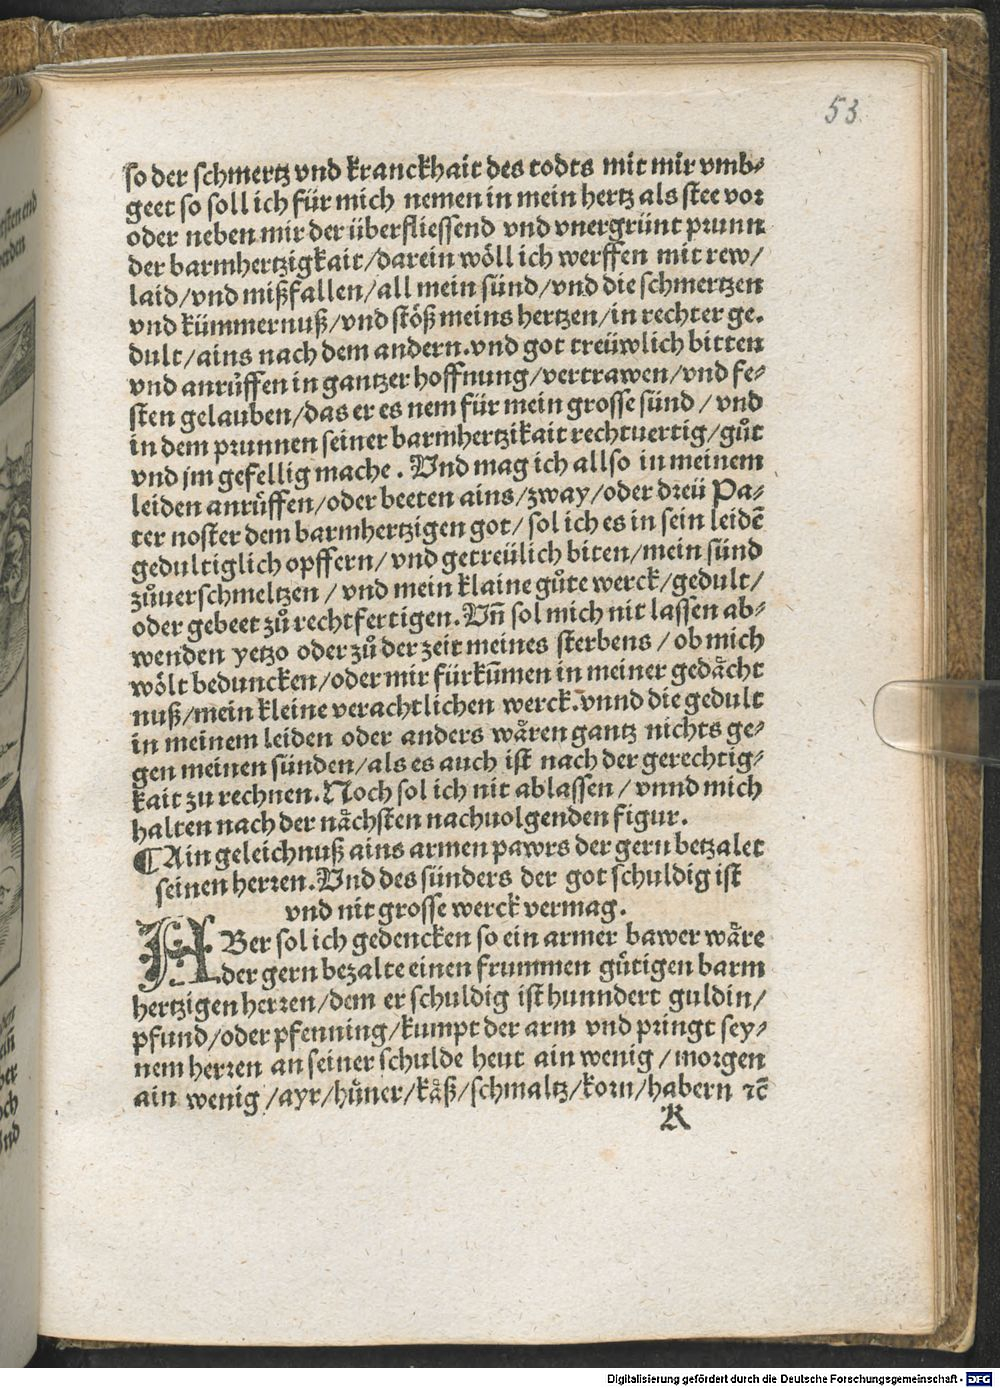 53
so der schmertz vnd kranckhait des todts mit mir vmb⸗
geet so soll ich für mich nemen in mein hertz als stee vor
oder neben mir der überfliessend vnd vnergrünt prunn
der barmhertzigkait/darein wöll ich werffen mit rew/
laid/vnd mißfallen/all mein sünd/vnd die schmertzen
vnd kümmernuß/vnd stöß meins hertzen/in rechter ge.
dult/ains nach dem andern.vnd got treüwlich bitten
vnd anrůffen in gantzer hoffnung/vertrawen/vnd fe⸗
sten gelauben/das er es nem für mein grosse sünd/vnd
in dem prunnen seiner barmhertzikait rechtuertig/gůt
vnd jm gefellig mache. Vnd mag ich allso in meinem
leiden anrůffen/oder beeten ains/zway/oder dreü Pa⸗
ter noster dem barmhertzigen got/sol ich es in sein leidē
gedultiglich opffern/vnd getreülich biten/mein sünd
zůuerschmeltzen/vnd mein klaine gůte werck/gedult/
oder gebeet zů rechtfertigen.Vñ sol mich nit lassen ab⸗
wenden yetzo oder zů der zeit meines sterbens/ob mich
wölt beduncken/oder mir fürkūmen in meiner gedåcht
nuß/mein kleine verachtlichen werck.vnnd die gedult
in meinem leiden oder anders wåren gantz nichts ge⸗
gen meinen sünden/als es auch ist nach der gerechtig⸗
kait zu rechnen.Noch sol ich nit ablassen/vnnd mich
halten nach der nåchsten nachuolgenden figur.
¶Ain geleichnuß ains armen pawrs der gern betzalet
seinen herren.Vnd des sünders der got schuldig ist
vnd nit grosse werck vermag.
ABer sol ich gedencken so ein armer bawer wåre
der gern bezalte einen frummen gůtigen barm
hertzigen herren/dem er schuldig ist hunndert guldin/
pfund/oder pfenning/kumpt der arm vnd pringt sey⸗
nem herren an seiner schulde heut ain wenig/morgen
ain wenig/ayr/hůner/kåß/schmaltz/korn/habern ⁊c̄
K
Digitalisierung gefördert durch die Deutsche Forschungsgemeinschaft - DFG